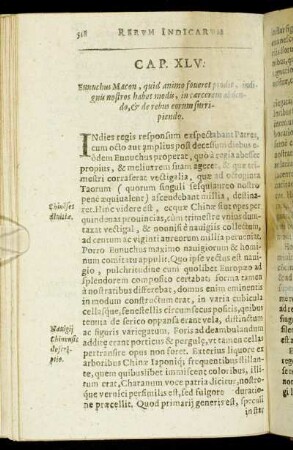 518 RERVM INDICARVM
CAP. XLV.
Eunuchus Macon, quid animo foueret prodit, indi-
gnis nostros habet modis, in carcerem
do, & de rebus eorum surri-
piendo.
INdies regis responsum exspectabant Patres,
cum octo aut amplius post decessum diebus e-
ôdem Ennuchus properat, quò à regia abesset
propius, & meliu rem suam ageret, & quæ tri-
mestri corraserat vectigalia, quæ ad octoginta
Taorum (quorum singuli sesquiaureo nostro
penè æquiualent) ascendebant millia, destina-
ret. Hinc videre est, ecquæ Chinæ sit regis per
quindenas prouincias, cùm trimestre vnius dum-
taxat vectigal, & nonnisi è nauigiis collectum,
ad centum ac viginti aureorum millia excreuerit.
Porro Ennuchus maximo nauigiorum & homi-
num comitatu appulit. Quo ipse vectus est naui-
gio, pulchritudine cum quolibet Europæo ad
splendorem composito certabat; forma tamen
à nostratibus differebat, domus enim eminentis
in modum constructum erat, in varia cubicula
cellasque, fenestellis circumsectus positis, quibus
tenuia de serico oppansa erant vela, distinctum
ac figuris variegatum. Foris ad deambulandum
additæ erant porticus & pergulæ, vt tamen cellas
pertransire opus non foret. Exterius liquore ex
arboribus Chinæ Iaponiq; frequentibus stillan-
te, quem quibuslibet immiscent coloribus, illi-
tum erat, Charanum voce patria dicitur, nostro-
que vernici persimilis est, sed fulgore duratio-
ne præcellit. Quod primarij generis est, speculi
instar
Chinæ
Nauigij
Chinensis
descri-
ptio.